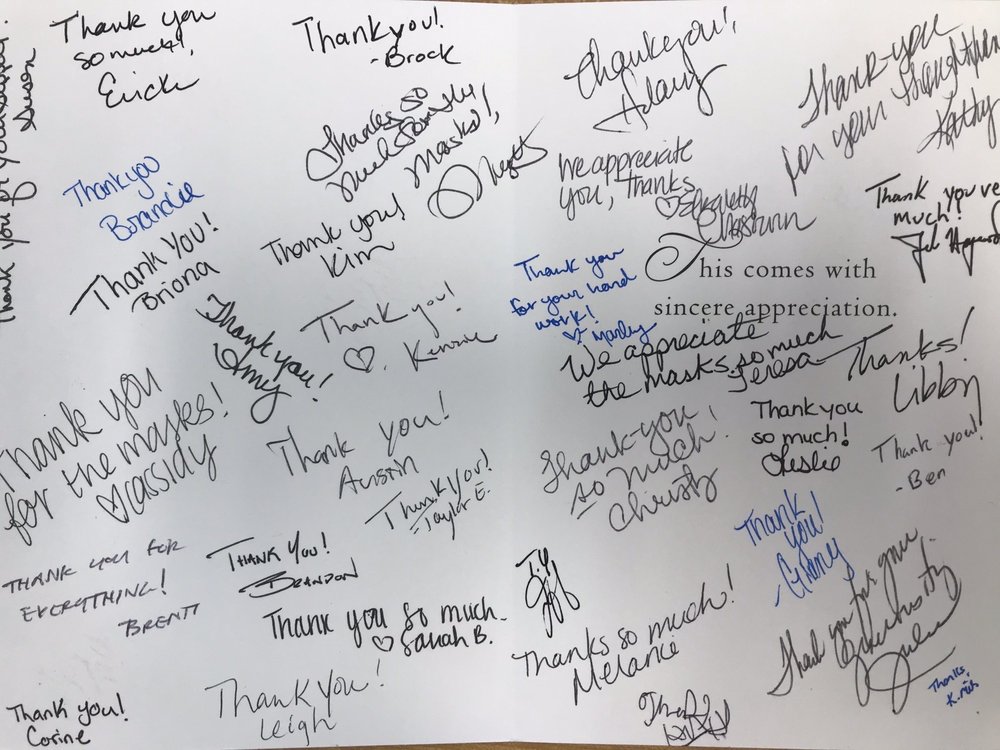 Thank you for your
Susan
Thank you
so much!,
Erick
Thank you
Brandie
Thank You!
Briona
Thank you!
Amy
Thank you
for the masks!
♡ Cassidy
THANK YOU FOR
EVERYTHING!
BRENT
Thank you!
Corine
Thank you!
-Brock
Thanks so
much for the
masks!,
Thank you!
Kim
Thank you!
♡ Kenzie
Thank you!
Austin
Thank you!
-Taylor E.
THANK YOU!
BRANDON
Thank you so much
♡ Sarah B.
Thank you!
Leigh
Thank you!,
We appreciate
you, thanks
♡ Elizabeth
Thank you
for your hard
work!
♡ Marley
This comes with
sincere appreciation.
We appreciate
the masks so much
Teresa
Thank-you
so much!
Christy
T.Y.
Thanks so much!
Melanie
Thank-you
for your
Kathy
Thank you
much!
Thanks!
Libby
Thank you
so much!
Leslie
Thank you!
-Ben
Thank
you!
Thank you for your
Thanks,